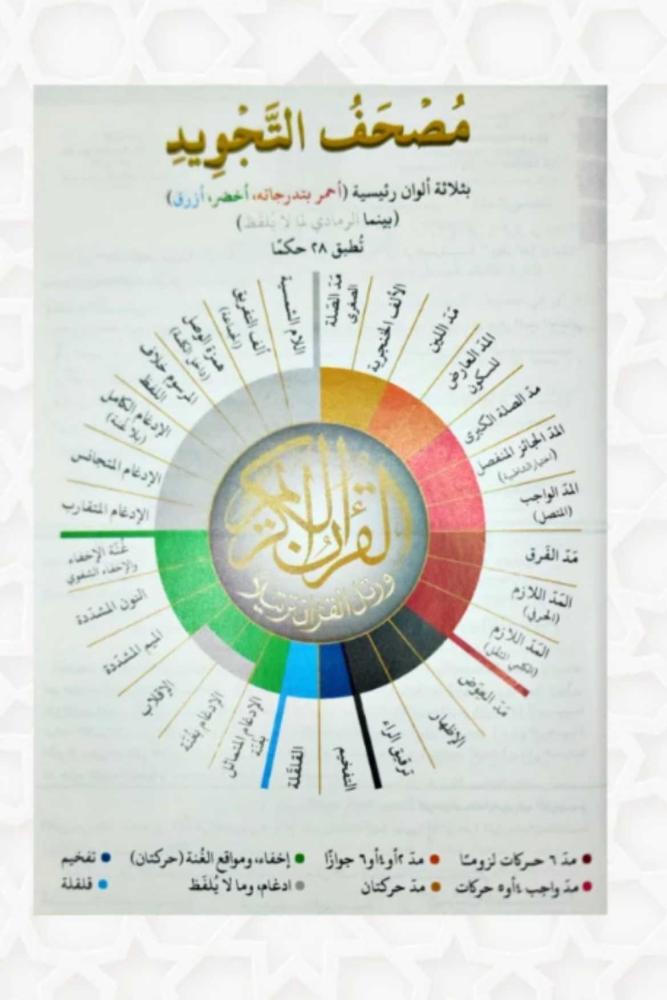 مُصْحَفُ التَّجْوِيدِ
بثلاثة ألوان رئيسية (أحمر بتدرجاته، أخضر، أزرق)
(بينما الرمادي لما لا يُلفَظ)
تُطبق ٢٨ حكمًا
مَدّ الصِّلة
الصغرى
الألف الخنجرية
مَدّ اللين
المَدّ العارض
للسكون
مَدّ الصلة الكبرى
المَدّ الجائز المنفصل
المَدّ الواجب
(المتصل)
مَدّ الفَرق
المَدّ اللازم
(الحرفي)
المَدّ اللازم
(الكلمي المثقل)
مَدّ العِوَض
الإظهار
ترقيق الراء
التفخيم
القلقلة
الإدغام المتماثل
بغنّة
الإدغام بغنّة
الإقلاب
الميم المشدّدة
النون المشدّدة
غُنّة الإخفاء
والإخفاء الشفوي
الإدغام المتقارب
الإدغام المتجانس
الإدغام الكامل
(بلا غنة)
المرسوم خلاف
اللفظ
همزة الوصل
(داخل الكلمة)
ألف التفريق
(الجماعة)
اللام الشمسية
القرآن الكريم
ورتل القرآن ترتيلا
مدّ ٦ حركات لزومـًا
مدّ ٢ أو ٤ أو ٦ جوازًا
إخفاء، ومواقع الغُنة (حركتان)
تفخيم
مدّ واجب ٤ أو ٥ حركات
مدّ حركتان
ادغام، وما لا يُلفَظ
قلقلة